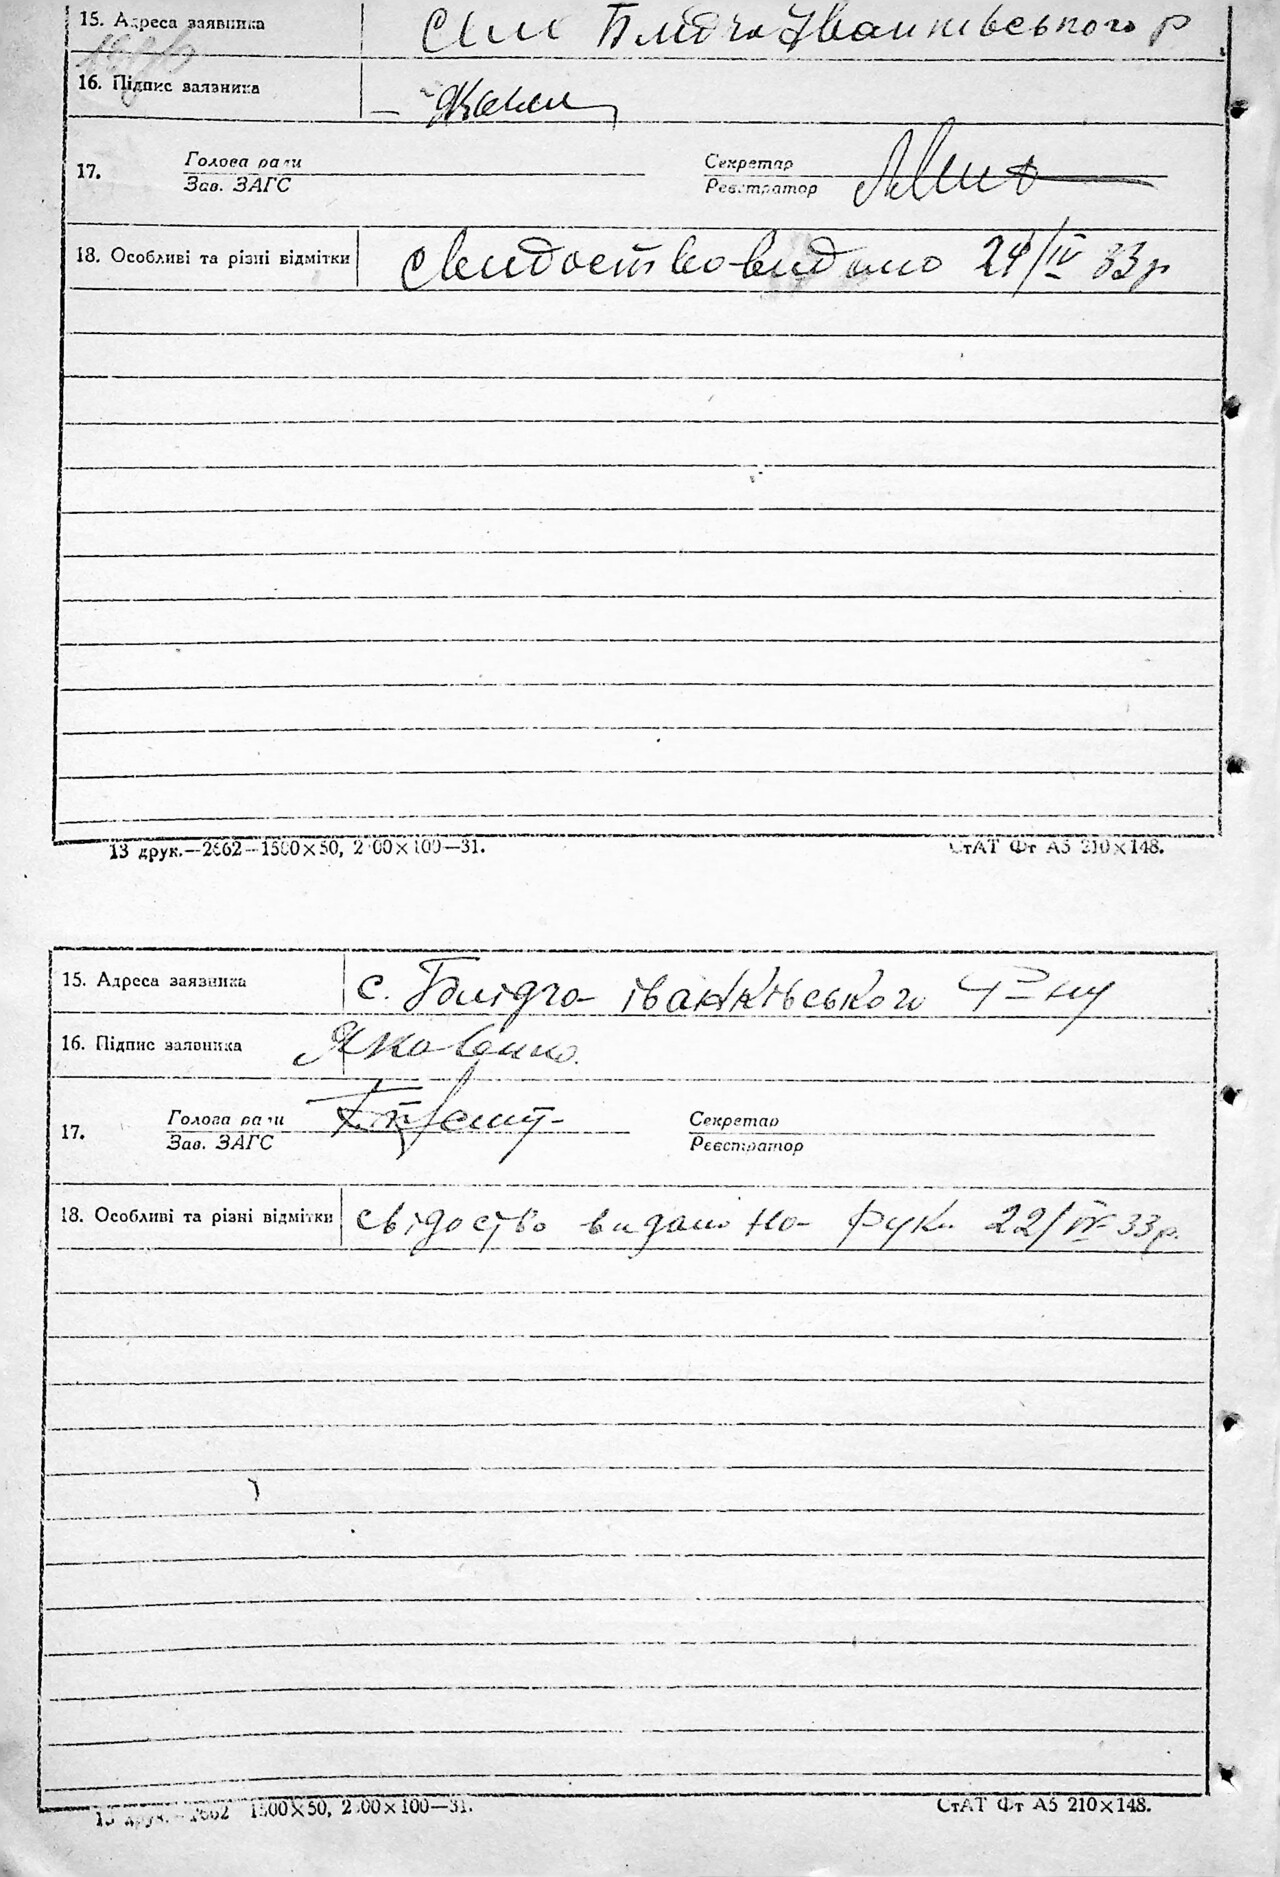 15. Адреса заявника Сели Блидча Іванківського р
16. Підпис заявника
17. Голова ради Секретар
Зав. ЗАГС Реєстратор
18. Особливі та різні відмітки свидоство видано 24/IV 33р
13 друк.—2662—1500×50, 2 00×100—31. СтАТ Фт А5 210×148.
15. Адреса заявника с. Блідча іванківського р-ну
16. Підпис заявника Яковенко
17. Голова ради Секретар
Зав. ЗАГС Реєстратор
18. Особливі та різні відмітки свідоство видано на руки 22/IV 33р.
13 друк.—2662 1500×50, 2 00×100—31. СтАТ Фт А5 210×148.